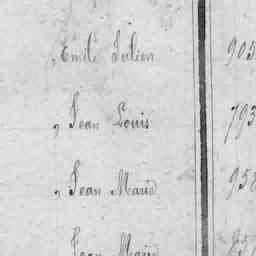 , Emile Julien 905
, Jean Louis 793
, Jean Marie 958
Jean Marie 857